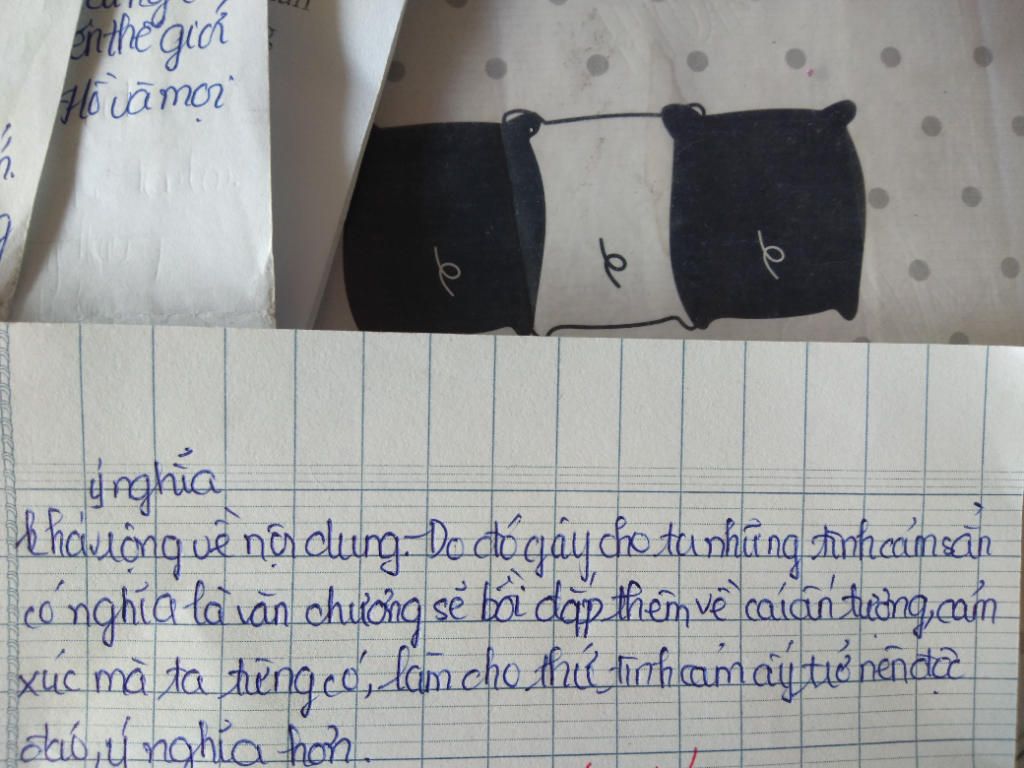 ến thế giới
Hồ và mọi
ý nghĩa
khá rộng về nội dung. Do đó gây cho ta những tình cảm sẵn
có nghĩa là văn chương sẽ bồi đắp thêm về cái ấn tượng, cảm
xúc mà ta từng có, làm cho thứ tình cảm ấy trở nên độc
đáo, ý nghĩa hơn.